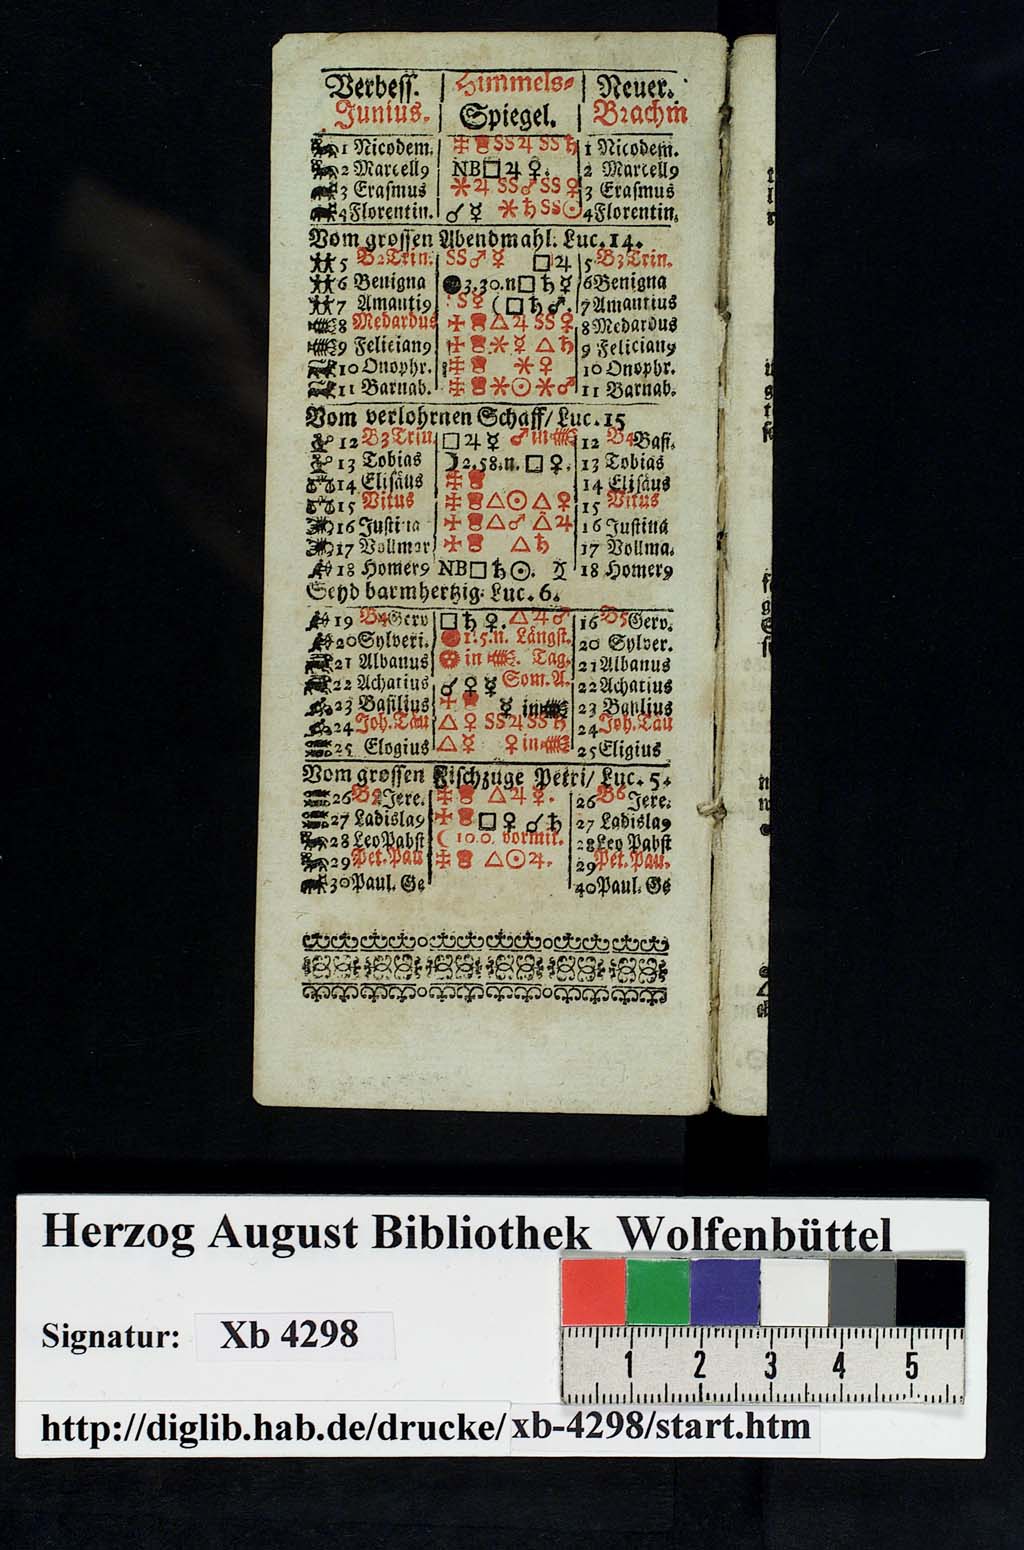 Verbess. Himmels- Neuer.
Junius. Spiegel. Brachm
1 Nicodem. SS♃ SS♄ 1 Nicodem.
2 Marcell9 NB□♃ ♀. 2 Marcell9
3 Erasmus ⚹♃ SS♂SS♀ 3 Erasmus
4 Florentin. ☌☿ ⚹♄SS☉ 4 Florentin.
Vom grossen Abendmahl. Luc. 14.
5 B2Trin. SS♂☿ □♃ 5 B3Trin.
6 Benigna ●3.30.n□♄☿ 6 Benigna
7 Amanti9 S☿ (□♄♂. 7 Amantius
8 Medardus △♃ SS♀ 8 Medardus
9 Felician9 ⚹☿ △♄ 9 Felician9
10 Onophr. ⚹♀ 10 Onophr.
11 Barnab. ⚹☉⚹♂ 11 Barnab.
Vom verlohrnen Schaff/ Luc. 15
12 B3Trin □♃☿ ♂in 12 B4Basi.
13 Tobias ☽2.58.n. □♀. 13 Tobias
14 Elisäus 14 Elisäus
15 Vitus △☉△♀ 15 Vitus
16 Justina △♂ △♃ 16 Justina
17 Vollmar △♄ 17 Vollma.
18 Homer9 NB□♄☉. 18 Homer9
Seyd barmhertzig. Luc. 6.
19 B4Gerv □♄♀. △♃♂ 16 B5Gerv.
20 Sylveri. 1.5.n. Längst. 20 Sylver.
21 Albanus in Tag. 21 Albanus
22 Achatius ☌♀☿ Som.A. 22 Achatius
23 Basilius ☿ in 23 Basilius
24 Joh. Täu △♀ SS♃SS♄ 24 Joh. Täu
25 Elogius △☿ ♀in 25 Eligius
Vom grossen Fischzuge Petri/ Luc. 5.
26 Jere. △♃☿. 26 B6 Jere.
27 Ladisla9 □♀ ☌♄ 27 Ladisla9
28 Leo Pabst ☾10.0. vormit. 28 Leo Pabst
29 Pet. Pau △☉♃. 29 Pet. Pau.
30 Paul. Ge 40 Paul. Ge
Herzog August Bibliothek Wolfenbüttel
Signatur: Xb 4298
1 2 3 4 5
http://diglib.hab.de/drucke/xb-4298/start.htm